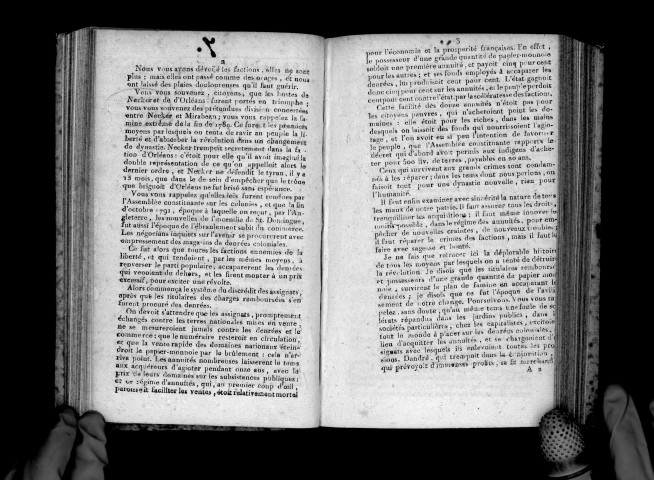 2
Nous vous avons dévoilé les factions, elles ne sont
plus ; mais elles ont passé comme des orages, et nous
ont laissé des plaies douloureuses qu'il faut guérir.
Vous vous souvenez, citoyens, que les bustes de
Necker et de d'Orléans furent portés en triomphe ;
vous vous souvenez des prétendues division concertées
entre Necker et Mirabeau ; vous vous rappelez la fa-
mine extrême de la fin de 1789. Ce furent les premiers
moyens par lesquels on tenta de ravir au peuple la li-
berté et d'absorber la révolution dans un changement
de dynastie. Necker trempoit secrettement dans la fac-
tion d'Orléans : c'étoit pour elle qu'il avoit imaginé la
double représentation de ce qu'on appelloit alors le
dernier ordre, et Necker ne défendit le tyran, il y a
15 mois, que dans le de sein d'empêcher que le trône
que briguoit d'Orléans ne fut brisé sans espérance.
Vous vous rappelez qu'elles lois furent rendues par
l'Assemblée constituante sur les colonies, et que la fin
d'octobre 1791, époque à laquelle on reçut, par l'An-
gleterre, les nouvelles de l'incendie de St. Domingue,
fut aussi l'époque de l'ébranlement subit du commerce.
Les négocians inquiets sur l'avenir se procurerent avec
empressement des magasins de denrées coloniales.
Ce fut alors que toutes les factions ennemies de la
liberté, et qui tendoient, par les mêmes moyens, à
renverser le parti populaire, accaparerent les denrées
qui venoient de dehors, et les firent monter à un prix
excessif, pour exciter une révolte.
Alors commença le systême du discrédit des assignats,
après que les titulaires des charges remboursées s'en
furent procuré des denrées.
On devoit s'attendre que les assignats, promptement
échangés contre les terres nationales mises en vente ;
ne se mesureroient jamais contre les denrées et le
commerce ; que le numéraire resteroit en circulation,
et que la vente rapide des domaines nationaux étein-
droit le papier-monnoie par le brûlement : cela n'ar-
riva point. Les annuités nombreuses laisserent le tems
aux acquéreurs d'agioter pendant onze ans, avec le
prix de leurs domaines sur les subsistances publiques ;
et ce régime d'annuités, qui, au premier coup d'œil,
paroissoit faciliter les ventes, étoit relativement mortel
3
pour l'économie et la prospérité françaises. En effet,
le possesseur d'une grande quantité de papier-monnoie
soldoit une première annuité, et payoit cinq pour cent
pour les autres ; et ses fonds employés à accaparer les
denrées, lui produisoient cent pour cent. L'état gagnoit
donc cinq pour cent sur les annuités, et le peuple perdoit
cent pour cent contre l'état par la scélératesse des factions.
Cette facilité des douze annuités n'étoit pas pour
les citoyens pauvres, qui n'achetoient point les do-
maines : elle étoit pour les riches, dans les mains
desquels on laissoit des fonds qui nourrissoient l'agio-
tage, et l'on avoit eu si peu l'intention de favoriser
le peuple, que l'Assemblée constituante rapporta le
décret qui d'abord avoit permis aux indigens d'ache-
ter pour 500 liv. de terres, payables en 20 ans.
Ceux qui survivent aux grands crimes sont condam-
nés à les réparer ; dans les tems dont nous parlons, on
faisoit tout pour une dynastie nouvelle, rien pour
l'humanité.
Il faut enfin examiner avec sincérité la nature de tous
les maux de notre patrie. Il faut assurer tous les droits,
tranquilliser les acquisitions ; il faut même innover le
moins possible, dans le régime des annuités, pour em-
pêcher de nouvelles craintes, de nouveaux troubles ;
il faut réparer le crimes des factions, mais il faut le
faire avec sagesse et bonté.
Je ne fais que retracer ici la déplorable histoire
de tous les moyens par lesquels on a tenté de détruire
la révolution. Je disois que les titulaires remboursés
et possesseurs d'une grande quantité de papier-mon-
noie, suivirent le plan de famine en accaparant les
denrées ; je disois que ce fut l'époque de l'avilis-
sement de notre change. Poursuivons. Vous vous rap-
pelez, sans doute, qu'au même tems une foule de scé-
lérats répandus dans les jardins publics, dans les
sociétés particulières, chez les capitalistes, excitoient
tout le monde à placer sur les denrées coloniales, au
lieu d'acquitter les annuités, et se chargeoient d'as-
signats avec lesquels ils enlevoient toutes les provi-
sions. Dandré, qui trempoit dans la conjuration,
qui prévoyoit d'immenses profits, se fit marchand
A 2